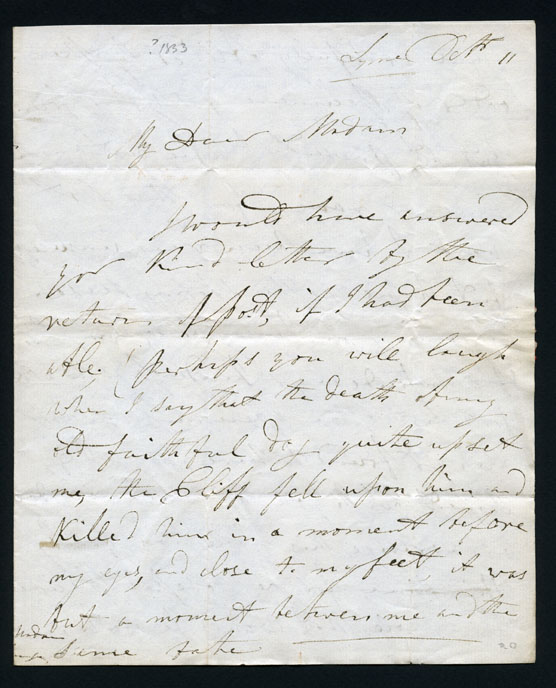 ? 1833
Lyme Octr 11
My Dear Madam
I would have answered
your kind letter by the
return of post, if I had been
able. perhaps you will laugh
when I say that the death of my
old faithful dog quite upset
me, the Cliff fell upon him and
Killed him in a moment before
my eyes, and close to my feet, it was
but a moment between me and the
Same fate